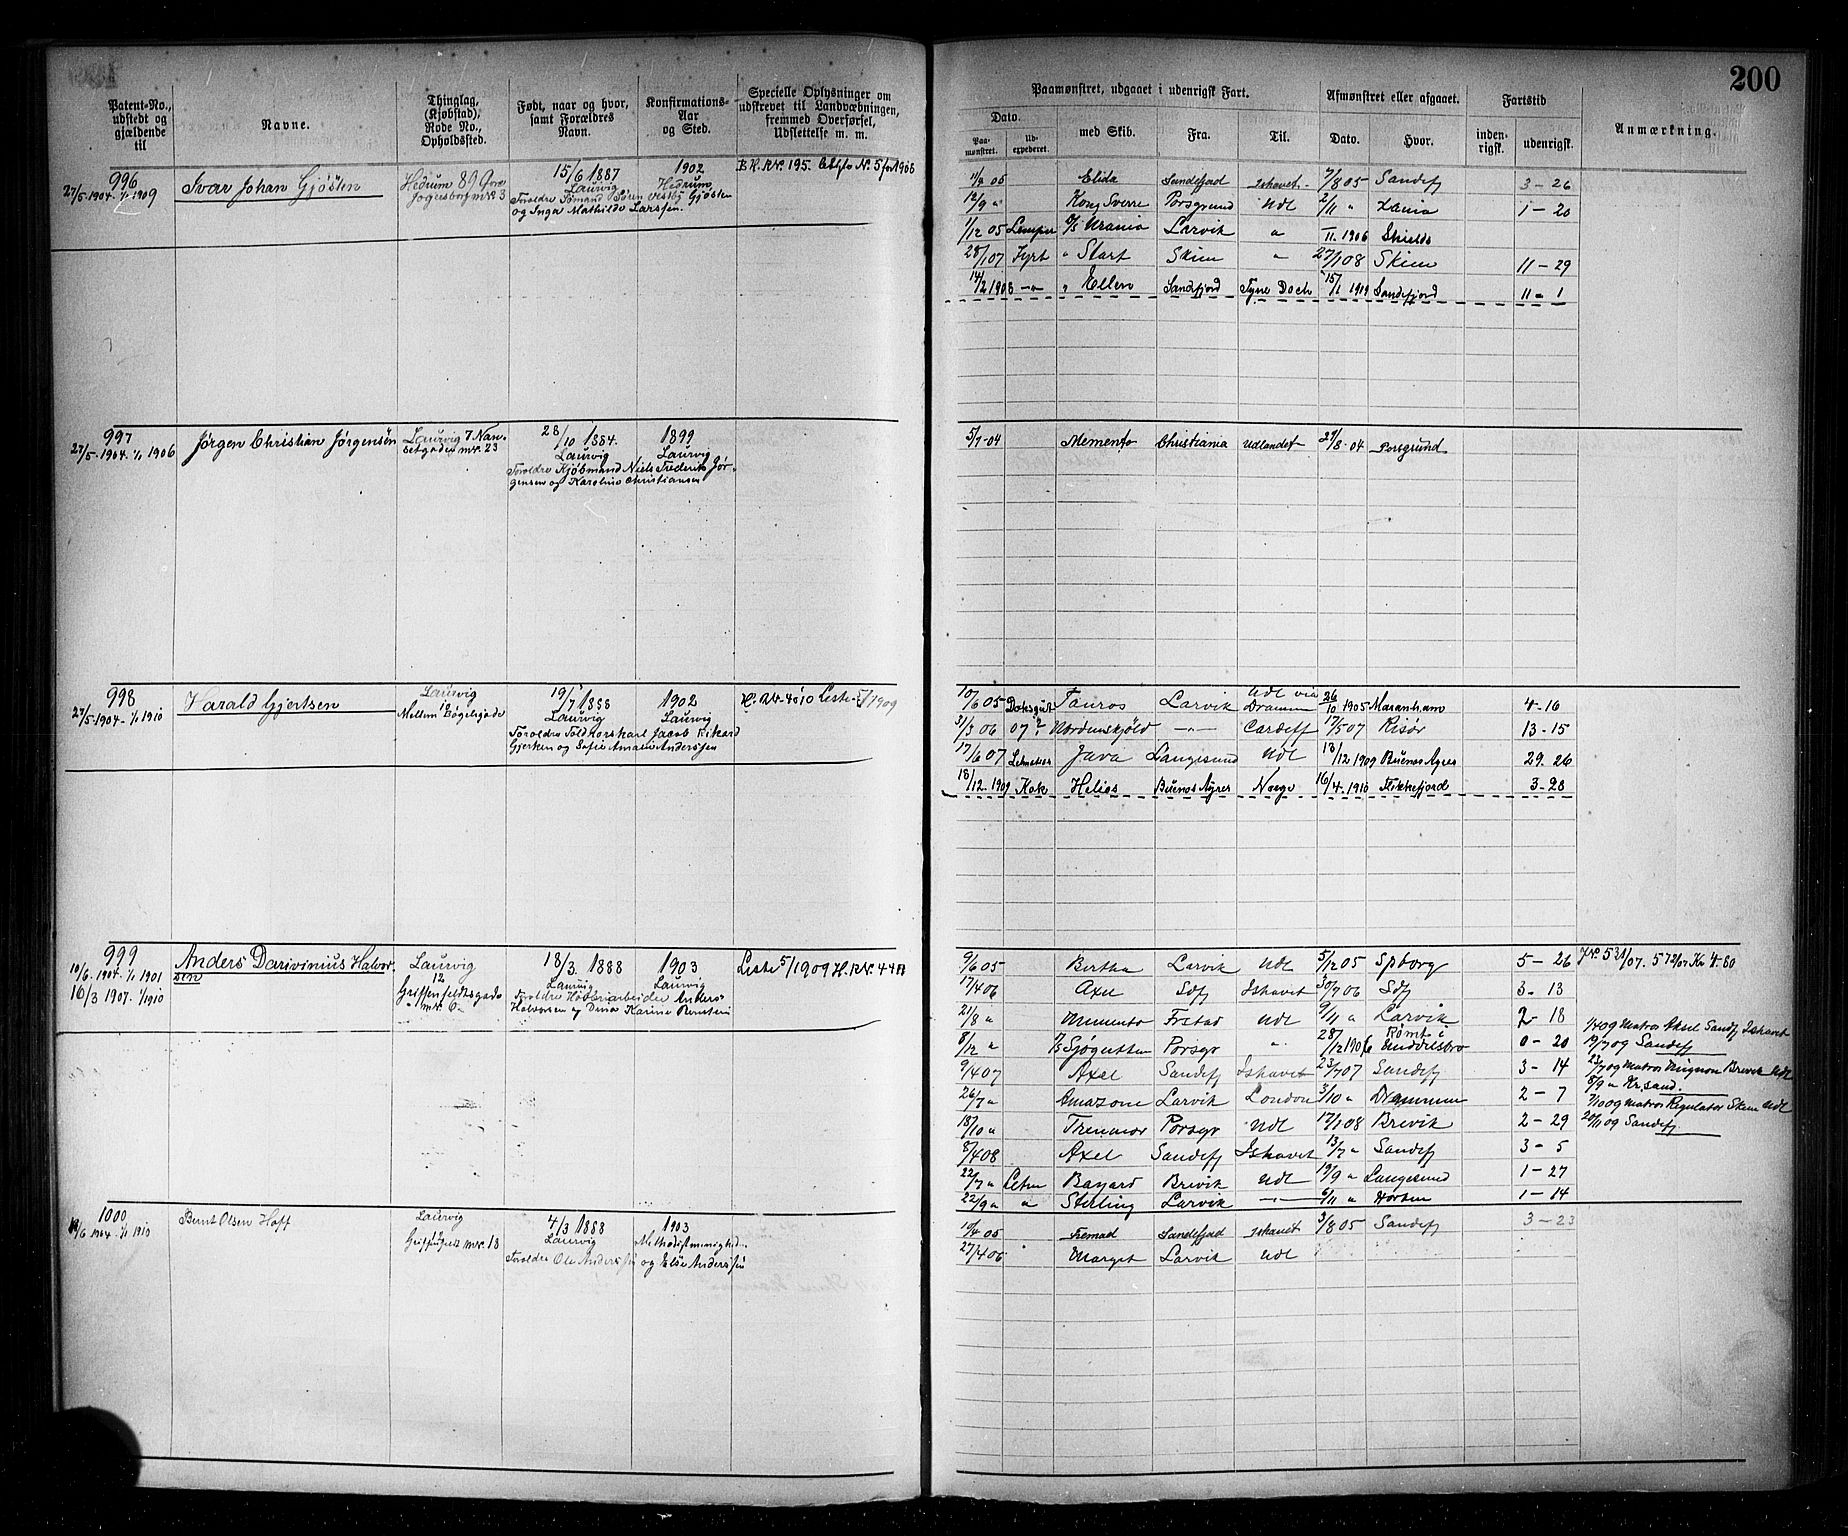 200
Patent-No., udstedt og gjældende til
Navne.
Thinglag, (Kjøbstad), Rode No., Opholdssted.
Født, naar og hvor, samt Forældres Navn.
Konfirmations-Aar og Sted.
Specielle Oplysninger om udskrevet til Landvæbningen, fremmed Overførsel, Udslettelse m. m.
Paamønstret, udgaaet i udenrigsk Fart.
Afmønstret eller afgaaet.
Fartstid
Anmærkning.
Dato.
Paa-mønstret.
Ud-expederet.
med Skib.
Fra.
Til.
Dato.
Hvor.
inden-rigsk.
udenrigsk.
996
27/5-1904-1/1 1909
Ivar Johan Gjösten
Hedrum 89
15/6 1887
Laurvig
og Inga Mathilde Larssen.
1902
Hedrum
Elida Sandefjord Ishavet 7/8 05 Sandefj 3-26
12/9 " Kong Sverre Porsgrund Udl 2/11 " 1-20
1/12 05 Urania Larvik " 11. 1906 Shields
28/1 07 Fyrb " Start Skien " 27/1 08 Skien 11-29
14/2 1908 -"- " Ellen Sandefjord Tyne Dock 15/1 1909 Sandefjord 11-1
997
27/5-1904-1/1 1906
Jørgen Christian Jørgensen
Laurvig 7 Nan-
setgaden mr. 23
28/10 1884.
Laurvig
Foreldre Kjöbmand Niels Frederik Jör-
gensen og Karoline Christiansen
1899
Laurvig
5/7-04 Memento Christiania Udlandet 29/8-04 Porsgrund
998
27/5-1904-1/1 1910
Harald Gjertsen
Laurvig
19/7 1888
Laurvig
Foreldre Toldkorskarl Jacob Rikard
Gjertsen og Sofie Amalie Anderssen
1902
Laurvig
10/6 05 Tauros Larvik Udl via Drammen 26/10 1905 Maranham 4-16
31/3 06 Nordenskjöld -"- Cardiff 17/5 07 Risør 13-15
17/6 07 Java Langesund Udl 18/12 1909 Buenos Ayres 29-26
18/12-1909 Kok Helios Buenos Ayres Norge 16/4-1910 Flekkefjord 3-28
999
10/6-1904-1/1 1901
16/3 1907-1/1 1910
Anders Darivinius Halvor-
sen
Laurvig
12
Griffenfeldtsgade
mr. 6
18/3. 1888
Laurvig
Foreldre Høvleriarbeider Anders
Halvorsen og Dina Karine Bernstein
1903
Laurvig
Liste 5/1909 H.R.Nr. 44
9/6 05 Bertha Larvik Udl 5/12 05 Spborg 5-26
17/4 06 Axel Sdfj Ishavet 30/7 06 Sdfj 3-13
21/8 " Memento Frstad Udl 9/11 " Larvik 2-18
8/12 " Sjøgutten Porsgr " 28/12 1906 Rømt i Middelsbro 0-20
9/4 07 Axel Sandefj Ishavet 23/7 07 Sandefj 3-14
26/7 " Amazone Larvik London 3/10 " Drammen 2-7
18/10 " Porsgr Udl 17/1 08 Brevik 2-29
8/4 08 Axel Sandefj Ishavet 13/7 " Sandefj 3-5
22/7 " Bayard Brevik Udl 19/9 " Langesund 1-27
22/9 " " Sterling Larvik -"- 6/11 " Horten 1-14
1/4 09 Matros Aksel Sandfj Ishavet
19/7 09 Sandefj
23/7 09 Matros Mignon Brevik Udl
8/9 " Kr.sand.
7/10 09 Matros Regulator Skien Udl
20/11 09 Sandefj
1000
1904 1/1 1910
Bernt Olsen Hoff
Laurvig
mr. 18
4/3 1888
Laurvig
Foreldre Ole Anderssen
1903
Methodistmenighed
og Elise Anderssen
Fremad Sandefjord Ishavet 3/8 05 Sandefj 3-23
27/4 06 Margit Larvik Udl